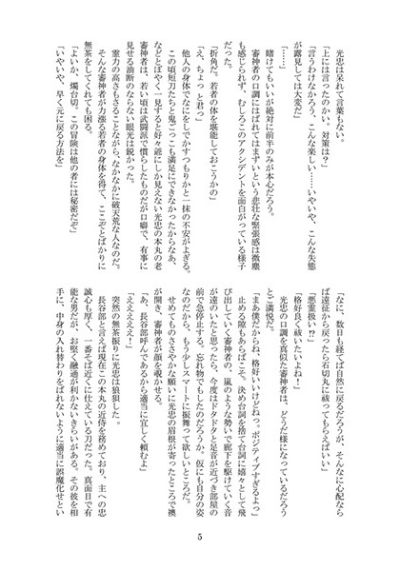 光忠は呆れて言葉もない。
「上には言ったのかい。対策は？」
「言うわけなかろう、こんな楽しい……いやいや、こんな失態
が露見しては大変だ」
「……」
賭けてもいいが絶対に前半のみが本心だろう。
審神者の口調にはばれてはまずいという悲壮な緊張感は微塵
も感じられず、むしろこのアクシデントを面白がっている様子
だった。
「折角だ。若者の体を堪能しておこうかの」
「え、ちょっと君っ」
他人の身体でなにをしでかすつもりかと一抹の不安がよぎる。
この頃短刀たちと鬼ごっこも満足にできなかったからなあ、
などとぼやく一見すると好々爺にしか見えない光忠の本丸の老
審神者は、若い頃は武闘派で慣らしたものだが口癖で、有事に
見せる油断のならない眼光は鋭かった。
霊力の高さもさることながら、なかなかに破天荒な人なのだ。
そんな審神者が力漲る若者の身体を得て、ここぞとばかりに
無茶をしてくれても困る。
「よいか、燭台切。この冒険は他の者には秘密だぞ」
「いやいや、早く元に戻る方法を」
「なに、数日も経てば自然に戻るだろうが、そんなに心配なら
ば遠征から戻ったら石切丸に祓ってもらえばいい」
「悪霊扱い!?」
「格好良く祓いたいよね！」
光忠の口調を真似た審神者は、どうだ様になっているだろう
とご満悦だ。
「まあ僕だからね、格好いいけどねっ。ポジティブすぎるよっ」
止める隙もあらばこそ。決め台詞を捨て台詞に嬉々として飛
び出していく審神者の、嵐のような勢いで廊下を駆けていく音
が遠のいたと思ったら、今度はドタドタと足音が近づき部屋の
前で急停止する。忘れ物でもしたのだろうか、仮にも自分の姿
なのだから、もう少しスマートに振舞って欲しいところだ。
せめてものささやかな願いに光忠の眉根が寄ったところで襖
が開き、審神者が顔を覗かせる。
「あ、長谷部呼んであるから適当に宜しく頼むよ」
「えええええ！」
突然の無茶振りに光忠は狼狽した。
長谷部と言えば現在この本丸の近侍を務めており、主への忠
誠心も厚く、一番そば近くに仕えている刀だった。真面目で有
能な男だが、お堅く融通が利かないきらいがある。その彼を相
手に、中身の入れ替わりをばれないように適当に誤魔化せとい
5